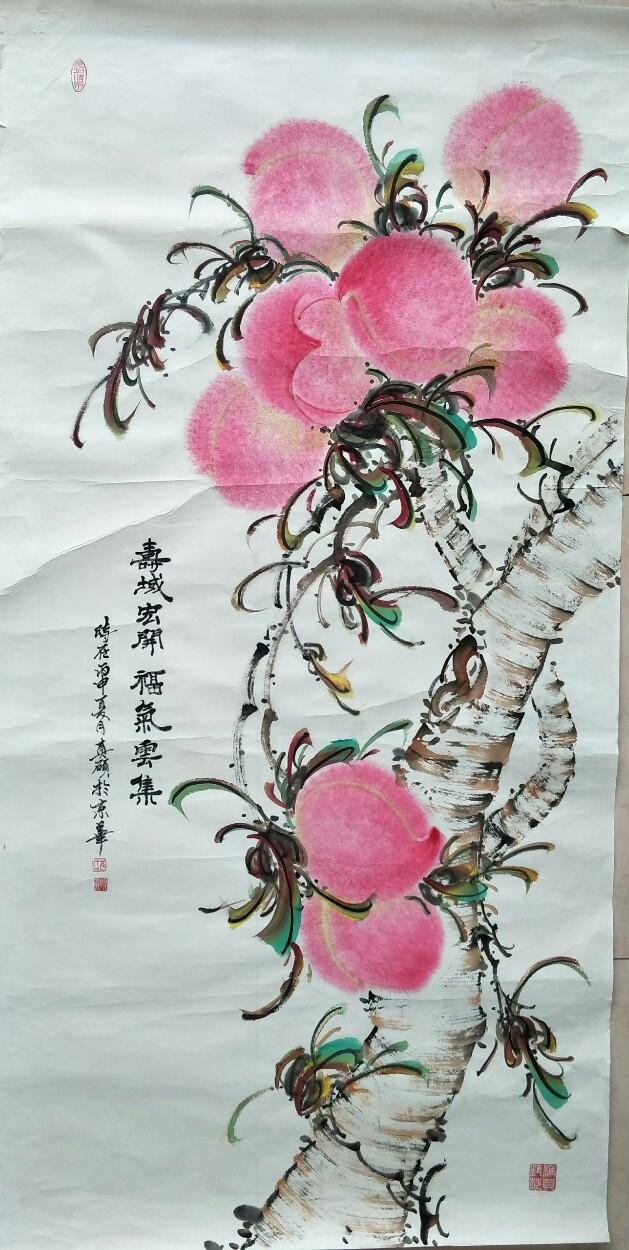 壽域宏開 福氣雲集
時在丙申夏月真碩於京華